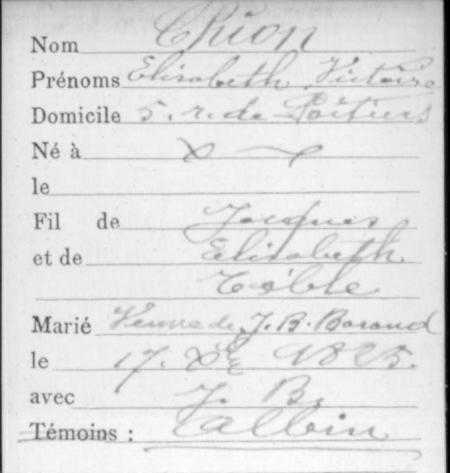 Nom Chion
Prénoms Elisabeth Victoire
Domicile 5. r. de Poitiers
Né à
le
Fil de Jacques
et de Elisabeth
Marié Veuve de J. B. Baraud
le 17. Xe 1825.
avec J. B.
Témoins : Calbin